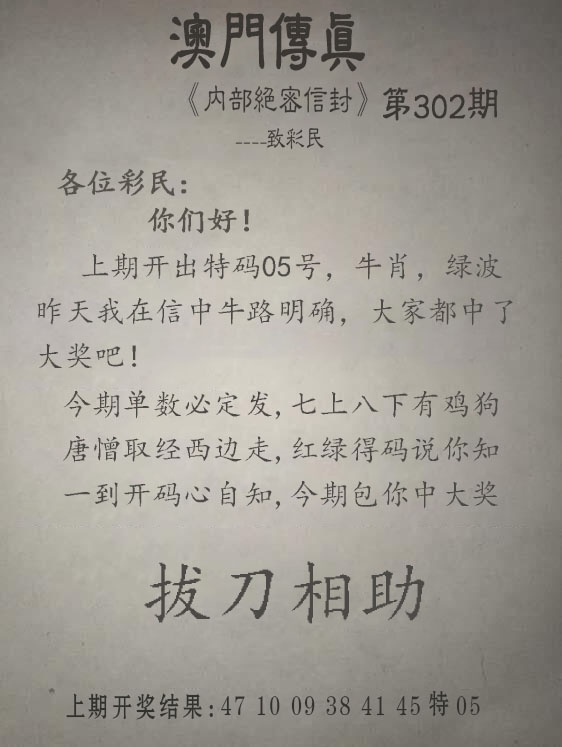 澳門傳眞
《内部絕密信封》第302期
----致彩民
各位彩民:
你们好!
上期开出特码05号, 牛肖, 绿波
昨天我在信中牛路明确, 大家都中了
大奖吧!
今期单数必定发, 七上八下有鸡狗
唐憎取经西边走, 红绿得码说你知
一到开码心自知, 今期包你中大奖
拔刀相助
上期开奖结果: 47 10 09 38 41 45 特 05